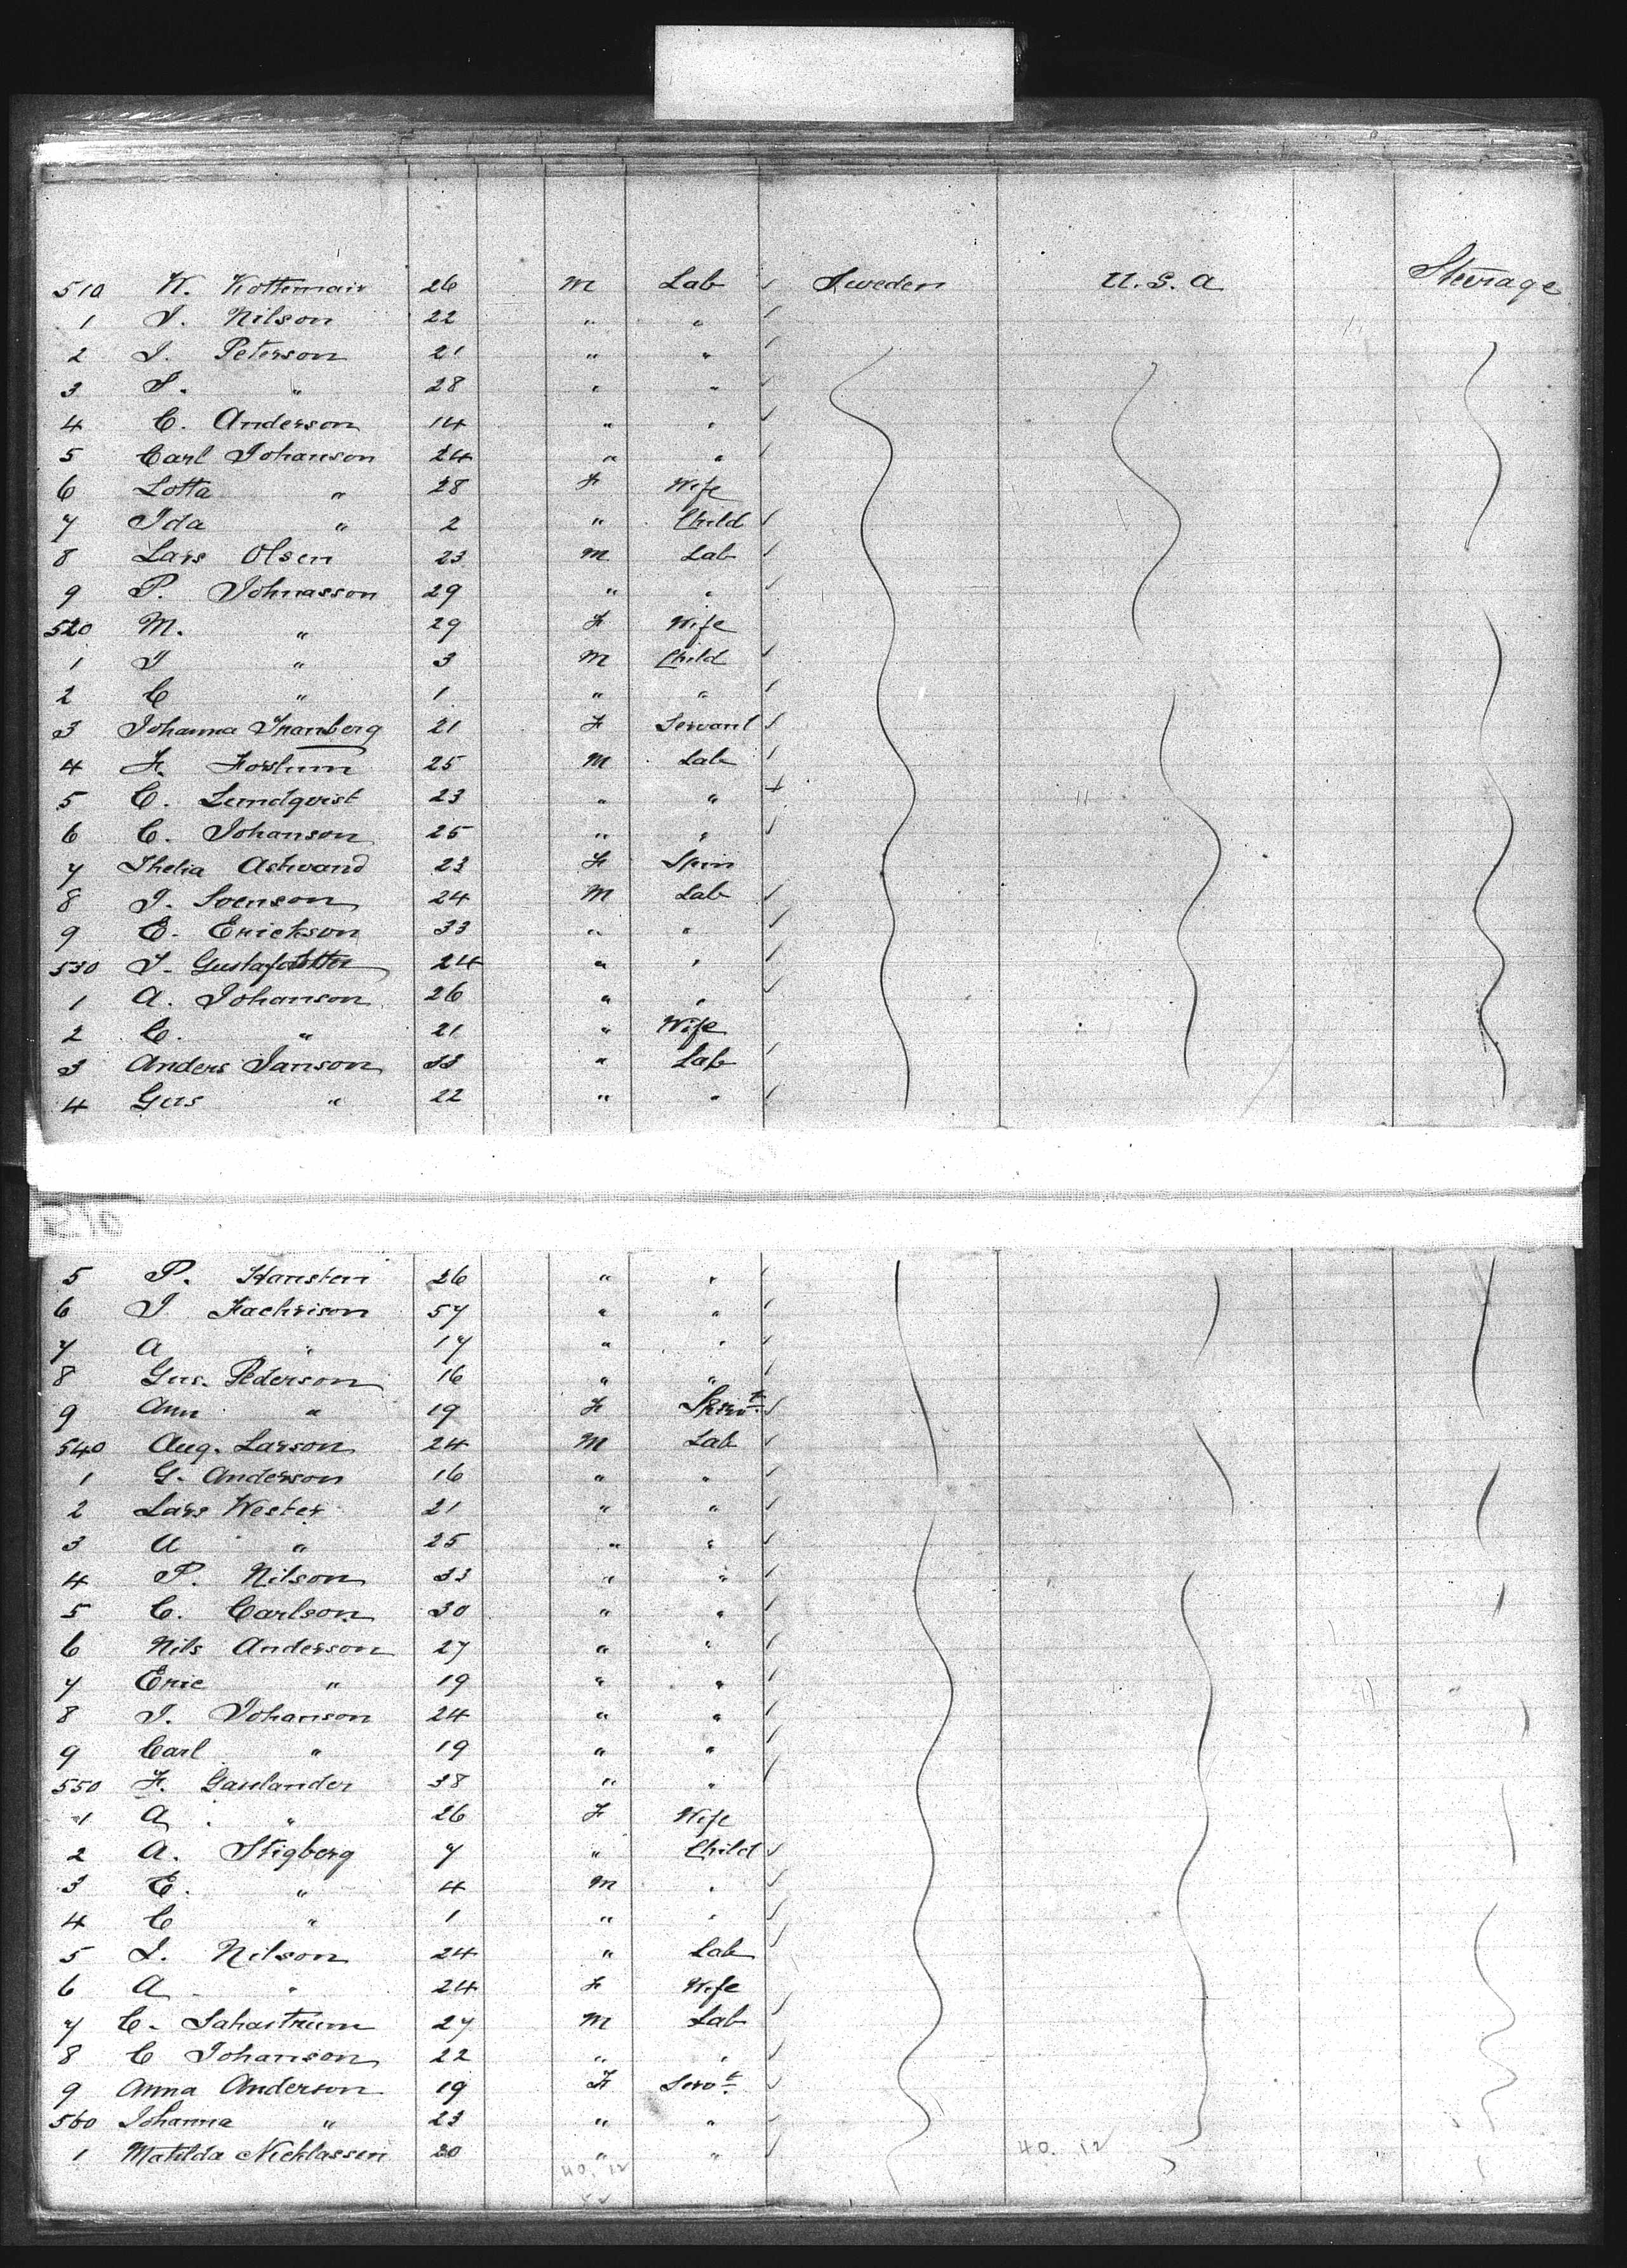 510 K. Kottemair 26 M Lab Sweden U.S.A Steerage
1 J. Nilson 22 " "
2 J. Peterson 21 " "
3 S. " 28 " "
4 C. Anderson 14 " "
5 Carl Johanson 24 " "
6 Lotta " 28 F Wife
7 Ida " 2 " Child
8 Lars Olsen 23 M Lab
9 P. Johnasson 29 " "
520 M. " 29 F Wife
1 J " 3 M Child
2 C " 1 " "
3 Johanna Tranberg 21 F Servant
4 F. Forslum 25 M Lab
5 C. Lundqvist 23 " "
6 C. Johanson 25 " "
7 Thelia Ashvand 23 F Spin
8 J. Svenson 24 M Lab
9 E. Erickson 33 " "
530 J. 24 " "
1 A. Johanson 26 " "
2 C. " 21 " Wife
3 Anders Janson 33 " Lab
4 Gus " 22 " "
R.10
5 P. Hansten 26 " "
6 J. Fachrison 57 " "
7 A " 17 " "
8 Gus. Pederson 16 " "
9 Ann " 19 F Servt
540 Aug. Larson 24 M Lab
1 G. Anderson 16 " "
2 Lars Wester 21 " "
3 A " 25 " "
4 P. Nilson 33 " "
5 C. Carlson 30 " "
6 Nils Anderson 27 " "
7 Eric " 19 " "
8 J. Johanson 24 " "
9 Carl " 19 " "
550 F. Gaulander 38 " "
1 A. " 26 F Wife
2 A. Stigberg 7 " Child
3 E. " 4 M "
4 C " 1 " "
5 L. Nilson 24 " Lab
6 A " 24 F Wife
7 C. Sahastrum 27 M Lab
8 C Johanson 22 " "
9 Anna Anderson 19 F Servt
560 Johanna " 23 " "
1 Matilda Nicklassen 20 " "
40. 12 40. 12